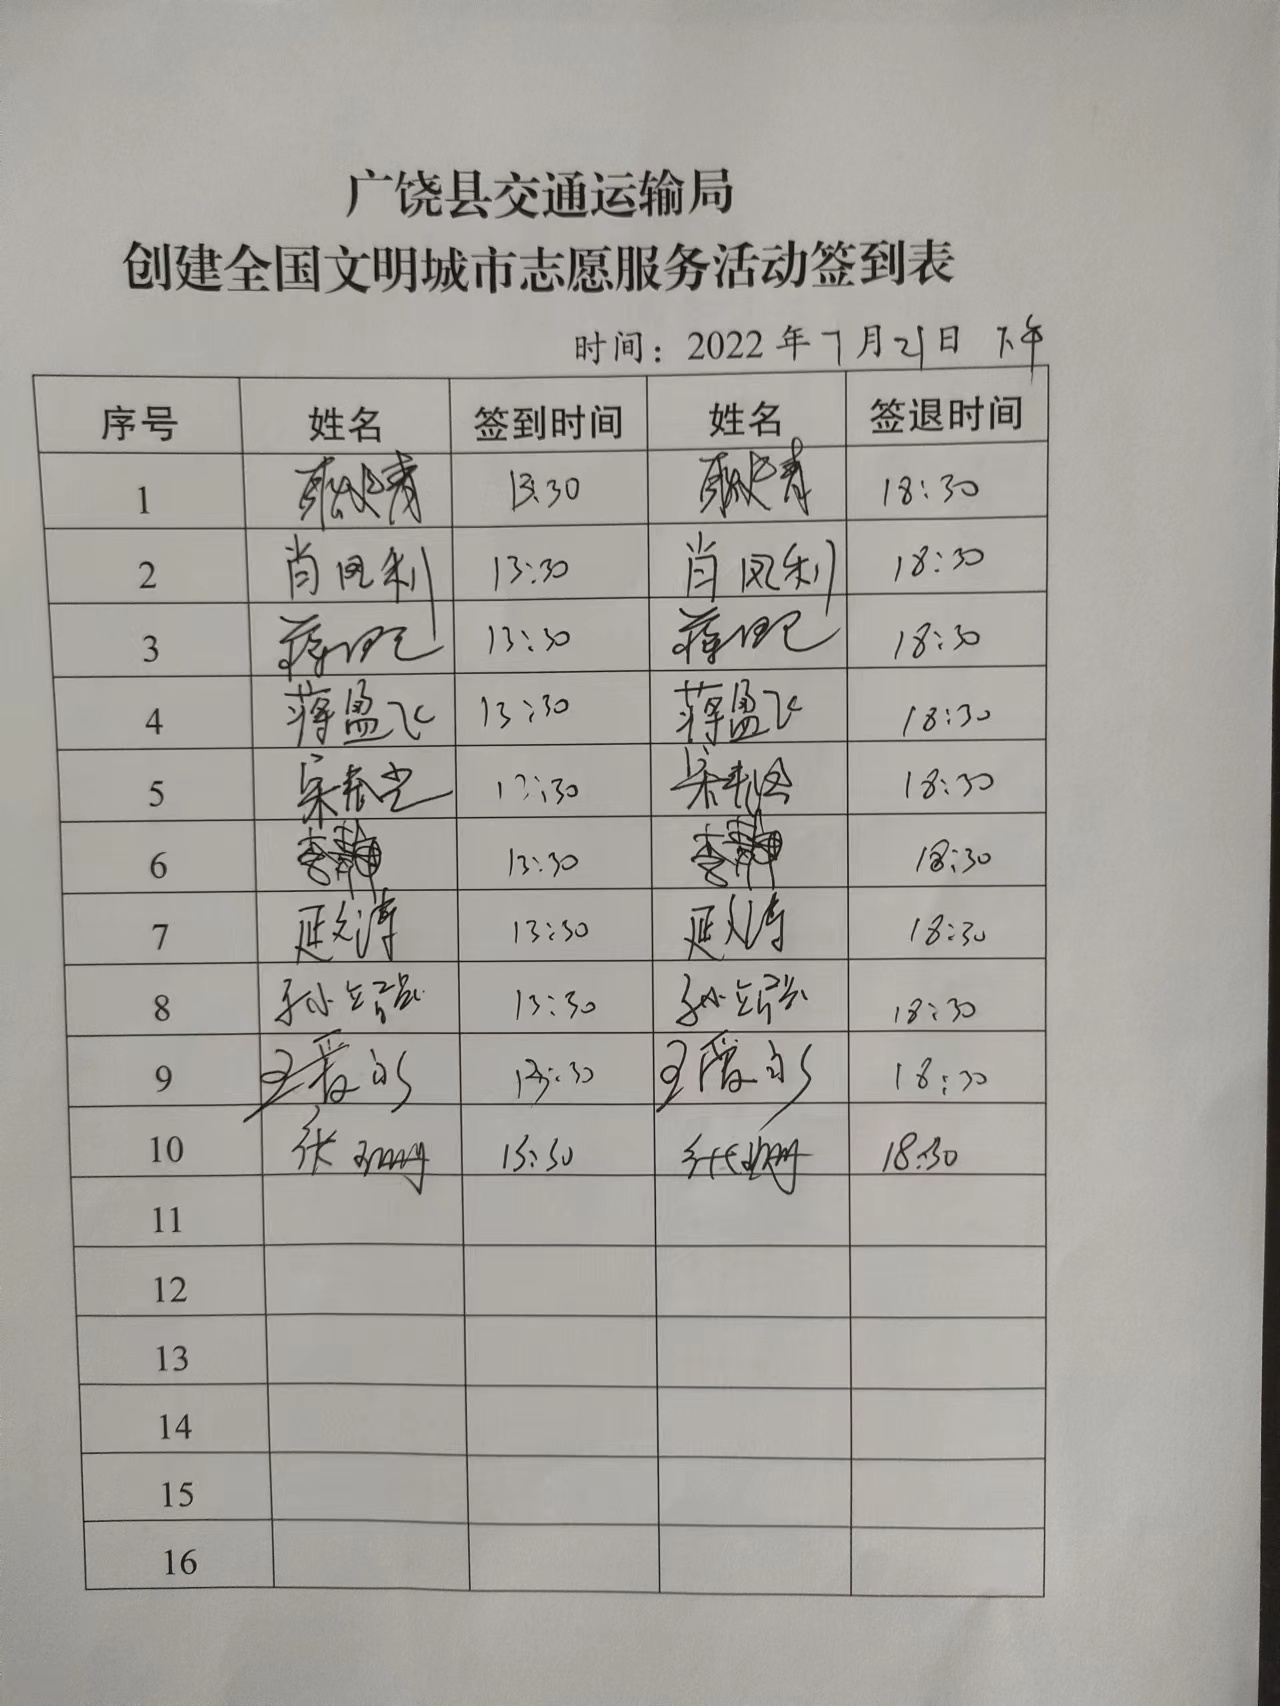 广饶县交通运输局
创建全国文明城市志愿服务活动签到表
时间：2022年7月21日 下午
序号 姓名 签到时间 姓名 签退时间
1 13:30 18:30
2 肖凤利 13:30 肖凤利 18:30
3 蒋 13:30 蒋 18:30
4 蒋盈飞 13:30 蒋盈飞 18:30
5 宋 13:30 宋 18:30
6 李静 13:30 李静 18:30
7 延文涛 13:30 延文涛 18:30
8 孙 13:30 孙 18:30
9 王 13:30 王 18:30
10 张 13:30 张 18:30
11
12
13
14
15
16